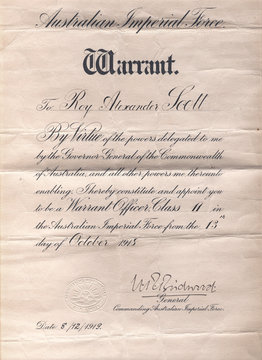 Australian Imperial Force.
Warrant.
To Roy Alexander Scott
By Virtue of the powers delegated to me
by the Governor General of the Commonwealth
of Australia, and all other powers me thereinto
enabling, I hereby constitute and appoint you
to be a Warrant Officer, Class II in
the Australian Imperial Force from the 13th
day of October 1918
General
Commanding Australian Imperial Force.
Date 8/12/1919.